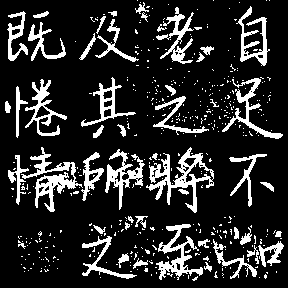 自足不知
老之將至
及其所之
既惓情